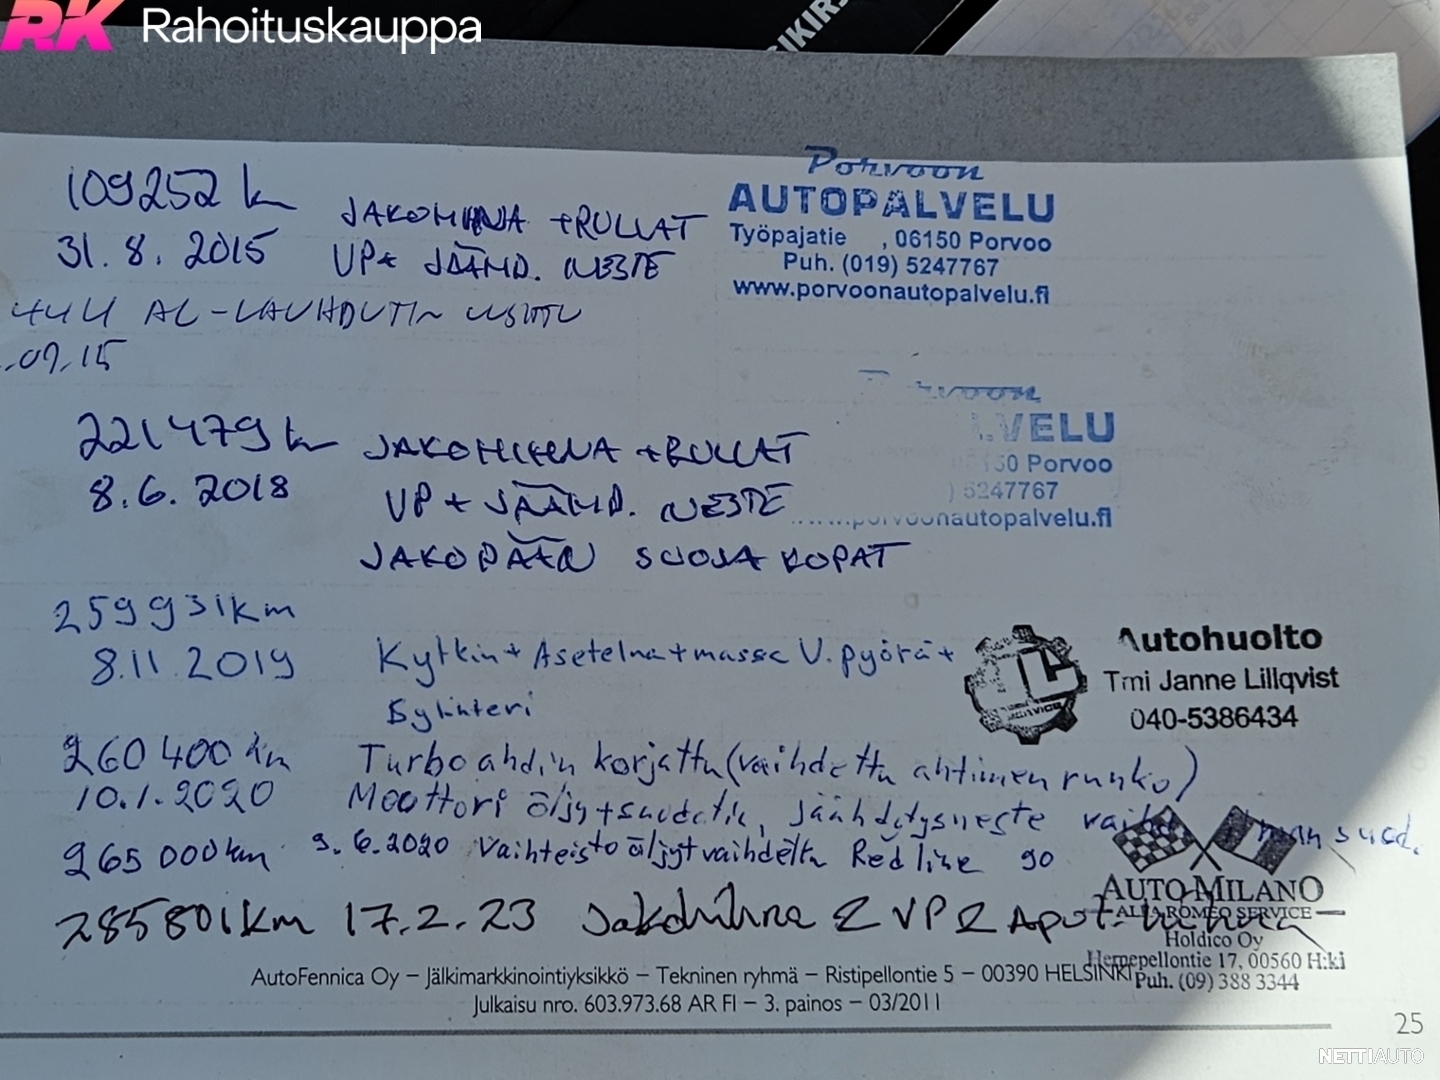 RK Rahoituskauppa
109252 km
31.8.2015
JAKOHIHNA +RULLAT
VP+ JÄÄHD. NESTE
Porvoon
AUTOPALVELU
Työpajatie , 06150 Porvoo
Puh. (019) 5247767
www.porvoonautopalvelu.fi
AC-LAUHDUTIN USITTU
.09.15
221479 km
8.6.2018
JAKOHIHNA +RULLAT
VP + JÄÄHD. NESTE
JAKOPÄÄN SUOJAKOPAT
LVELU
50 Porvoo
) 5247767
porvoonautopalvelu.fi
259931km
8.11.2019
Kytkin + Asetelma + massa V.pyörä +
Sylinteri
Autohuolto
Tmi Janne Lillqvist
040-5386434
260 400 km
10.1.2020
Turboahdin korjattu (vaihdettu ahtimen runko)
Moottori öljy + suodatin, Jäähdytysneste
265 000 km 9.6.2020 Vaihteistoöljyt vaihdettu Red line 90
285801km 17.2.23 Jakohihna & VP &
AUTO MILANO
ALFA ROMEO SERVICE
Holdico Oy
Hernepellontie 17, 00560 H:ki
Puh. (09) 388 3344
AutoFennica Oy – Jälkimarkkinointiyksikkö – Tekninen ryhmä – Ristipellontie 5 – 00390 HELSINKI
Julkaisu nro. 603.973.68 AR FI – 3. painos – 03/2011
25
NETTIAUTO